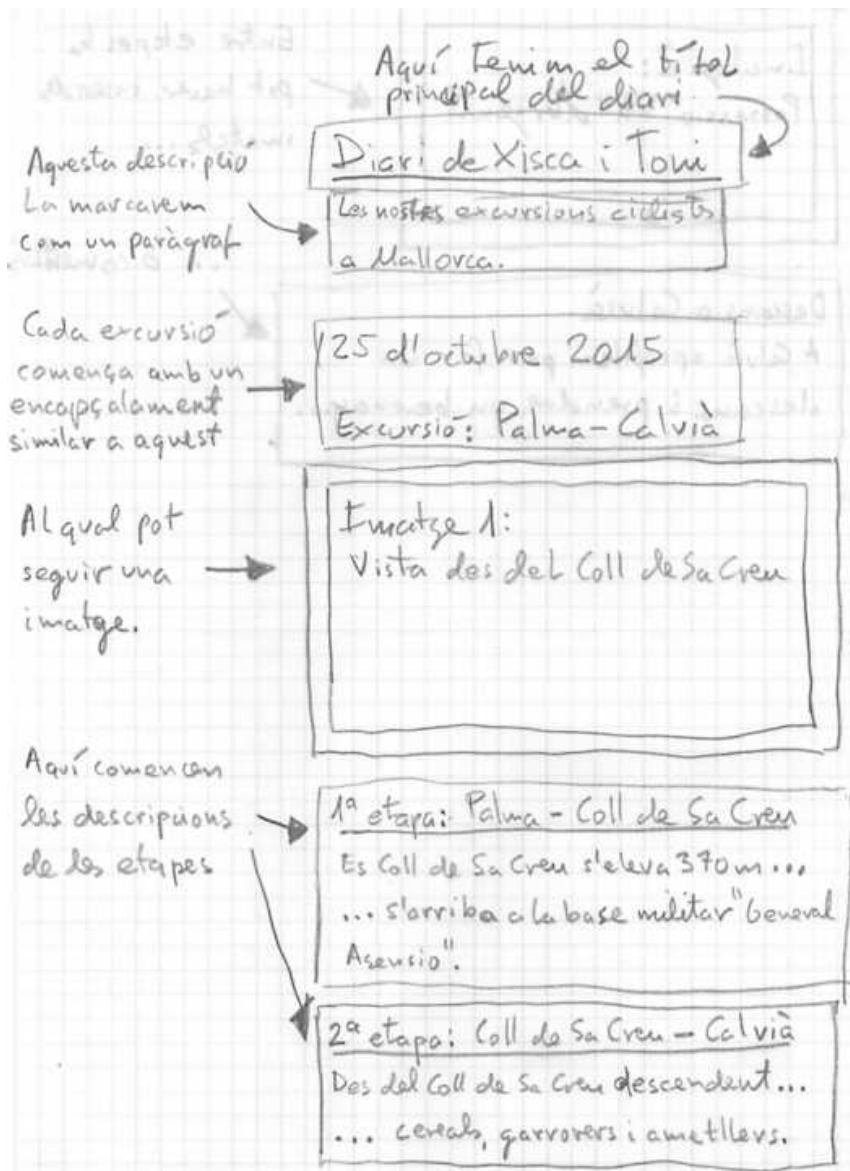 Aquí tenim el títol
principal del diari
Diari de Xisca i Toni
Aquesta descripció
La marcarem
com un paràgraf
Les nostres excursions ciclists
a Mallorca.
Cada excursió
comença amb un
encapçalament
similar a aquest
25 d'octubre 2015
Excursió: Palma-Calvià
Al qual pot
seguir una
imatge.
Imatge 1:
Vista des del Coll de Sa Creu
Aquí comencen
les descripcions
de les etapes
1ª etapa: Palma - Coll de Sa Creu
Es Coll de Sa Creu s'eleva 370m...
... s'arriba a la base militar "General
Asensio".
2ª etapa: Coll de Sa Creu - Calvià
Des del Coll de Sa Creu descendent...
... cereals, garrovers i ametllers.